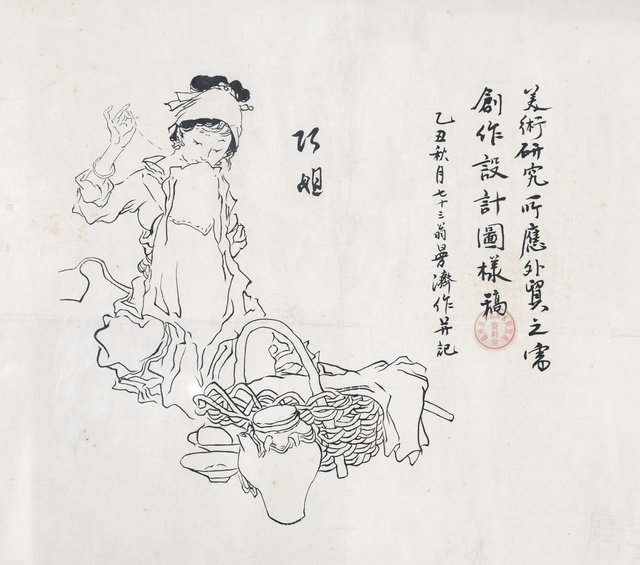 美術研究所應外貿之需
創作設計圖樣稿
乙丑秋月七十三翁曼濟作並記
巧姐